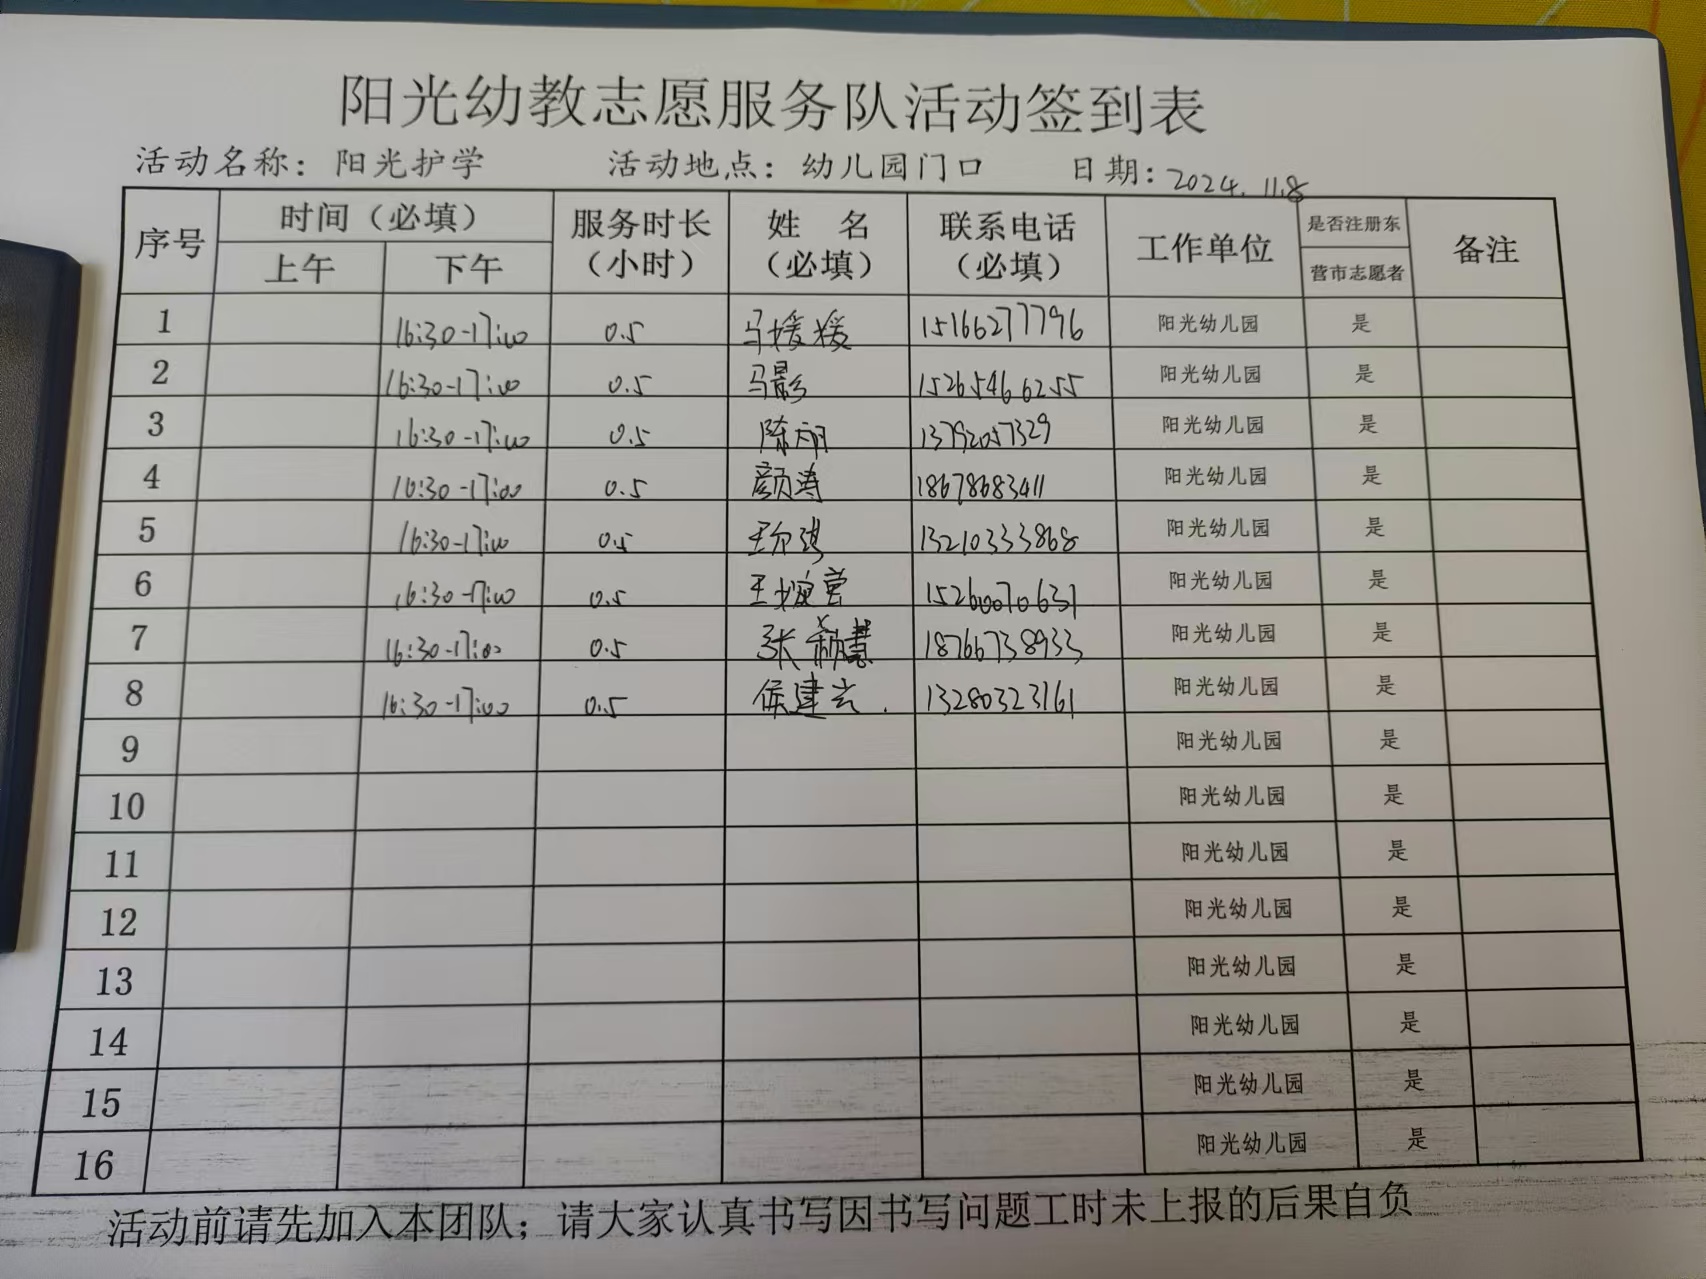 阳光幼教志愿服务队活动签到表
活动名称：阳光护学 活动地点：幼儿园门口 日期：2024.11.8
序号 时间（必填） 服务时长（小时） 姓 名（必填） 联系电话（必填） 工作单位 是否注册东营市志愿者 备注
上午 下午
1 16:30-17:00 0.5 马媛媛 15166277796 阳光幼儿园 是
2 16:30-17:00 0.5 马影 15265466255 阳光幼儿园 是
3 16:30-17:00 0.5 陈翊 13792057329 阳光幼儿园 是
4 16:30-17:00 0.5 颜涛 18678683411 阳光幼儿园 是
5 16:30-17:00 0.5 13210333868 阳光幼儿园 是
6 16:30-17:00 0.5 15260070631 阳光幼儿园 是
7 16:30-17:00 0.5 18766738933 阳光幼儿园 是
8 16:30-17:00 0.5 侯建云 13280323161 阳光幼儿园 是
9 阳光幼儿园 是
10 阳光幼儿园 是
11 阳光幼儿园 是
12 阳光幼儿园 是
13 阳光幼儿园 是
14 阳光幼儿园 是
15 阳光幼儿园 是
16 阳光幼儿园 是
活动前请先加入本团队；请大家认真书写因书写问题工时未上报的后果自负